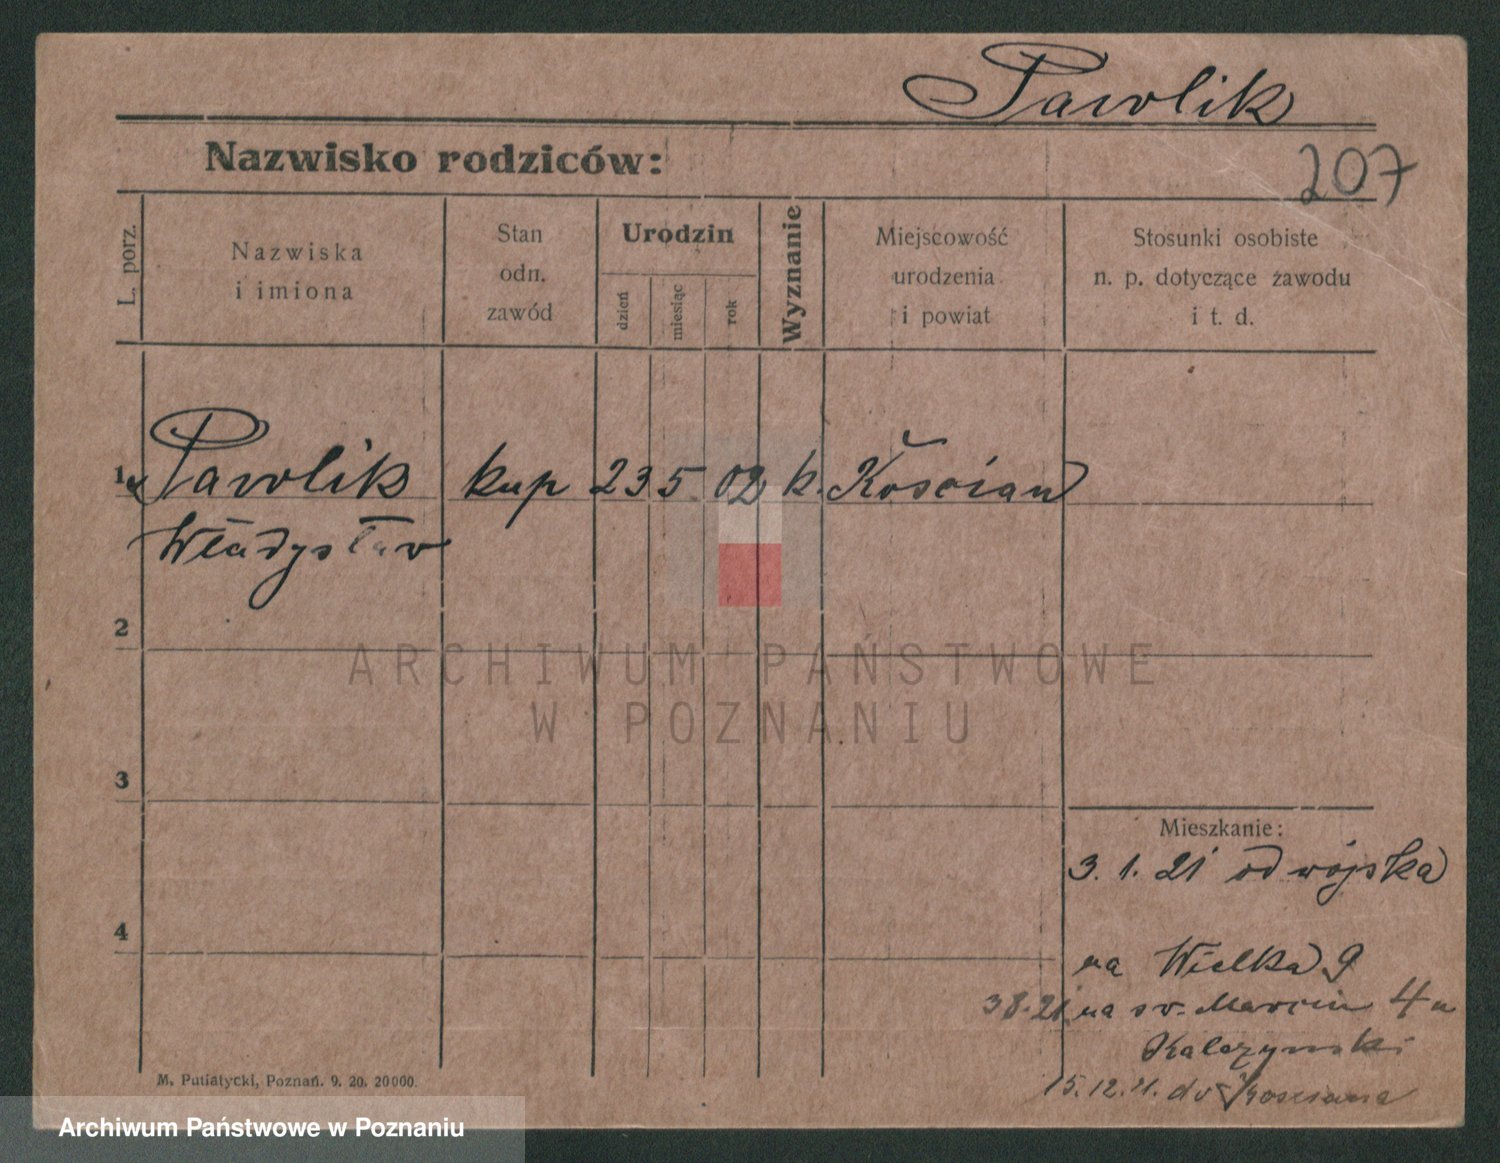 Pawlik
Nazwisko rodziców:
207
L. porz.
Nazwiska
i imiona
Stan
odn.
zawód
Urodzin
dzień
miesiąc
rok
Wyznanie
Miejscowość
urodzenia
i powiat
Stosunki osobiste
n. p. dotyczące zawodu
i t. d.
1 Pawlik kup 23 5 02 k. Kościan
Władysław
2
ARCHIWUM PAŃSTWOWE
W POZNANIU
3
Mieszkanie:
3. 1. 21 od wojska
4
na Wielka 9
3 8. 21 na sw. Marcin 4 u
15. 12. 21. do Kosciana
M. Putiatycki, Poznań. 9. 20. 20000.
Archiwum Państwowe w Poznaniu